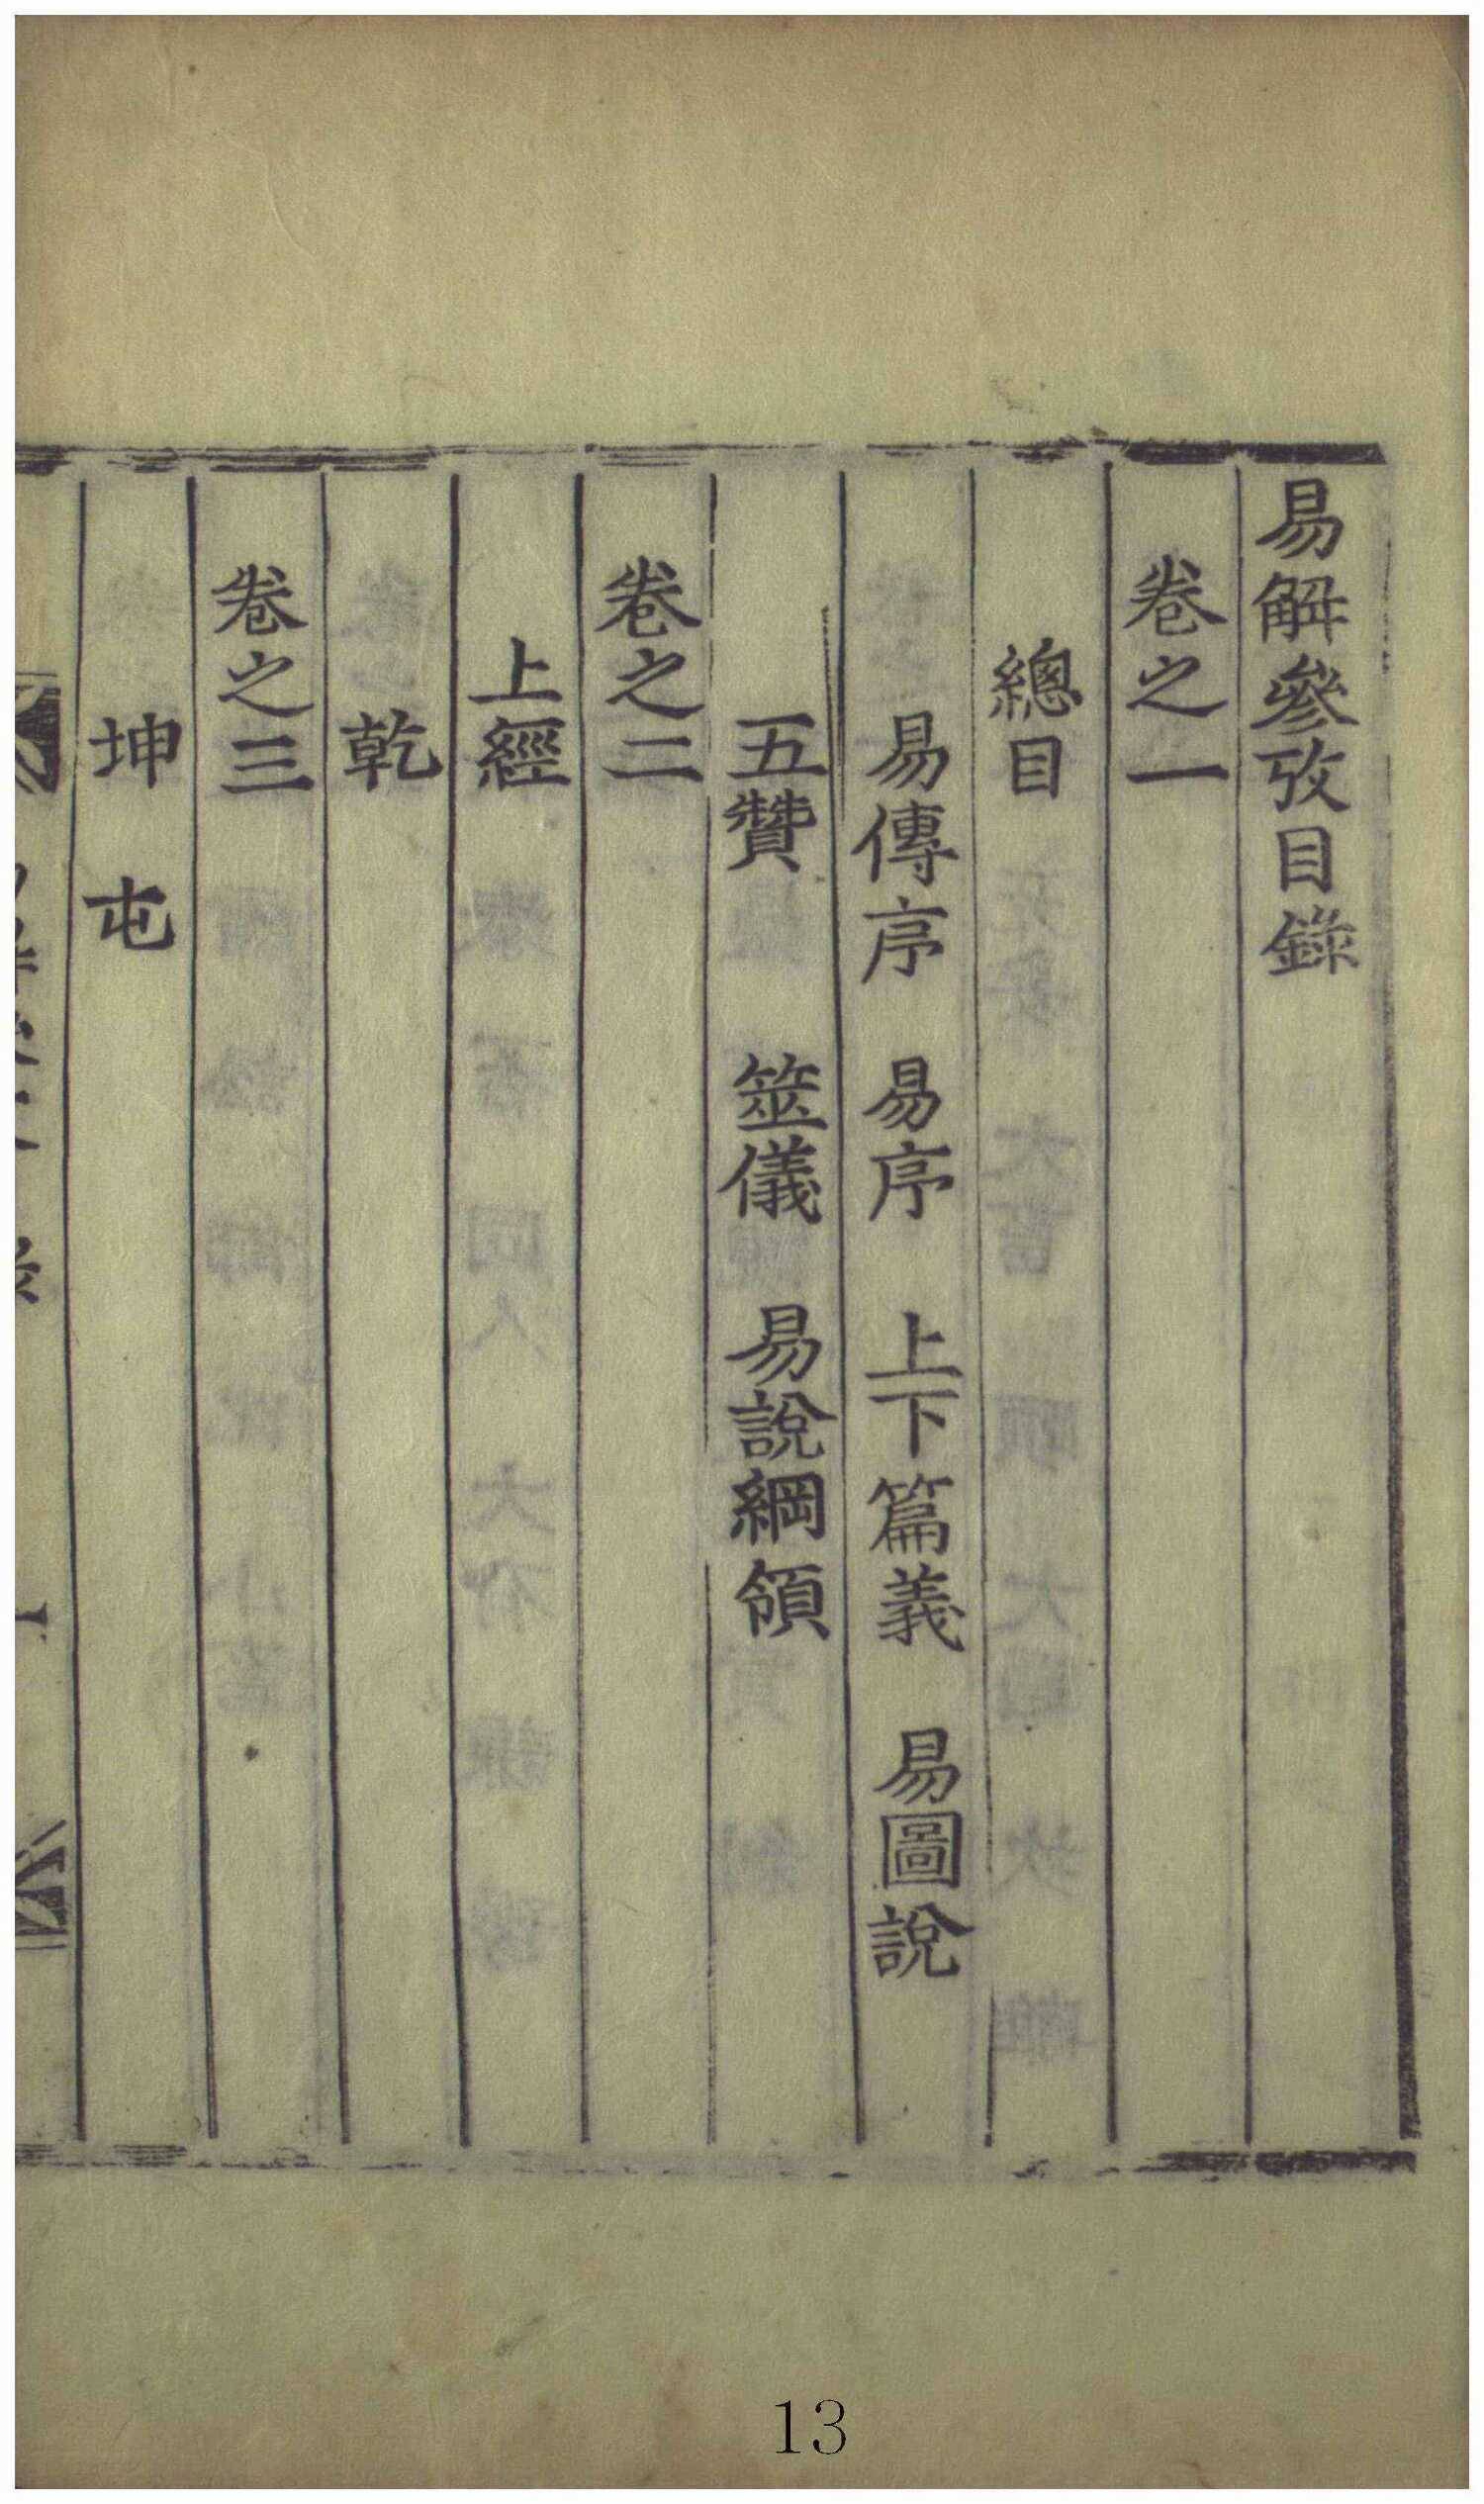 易解參攷目錄
卷之一
總目
易傳序 易序 上下篇義 易圖說
五贊 筮儀 易說綱領
卷之二
上經
乾
卷之三
坤 屯
13